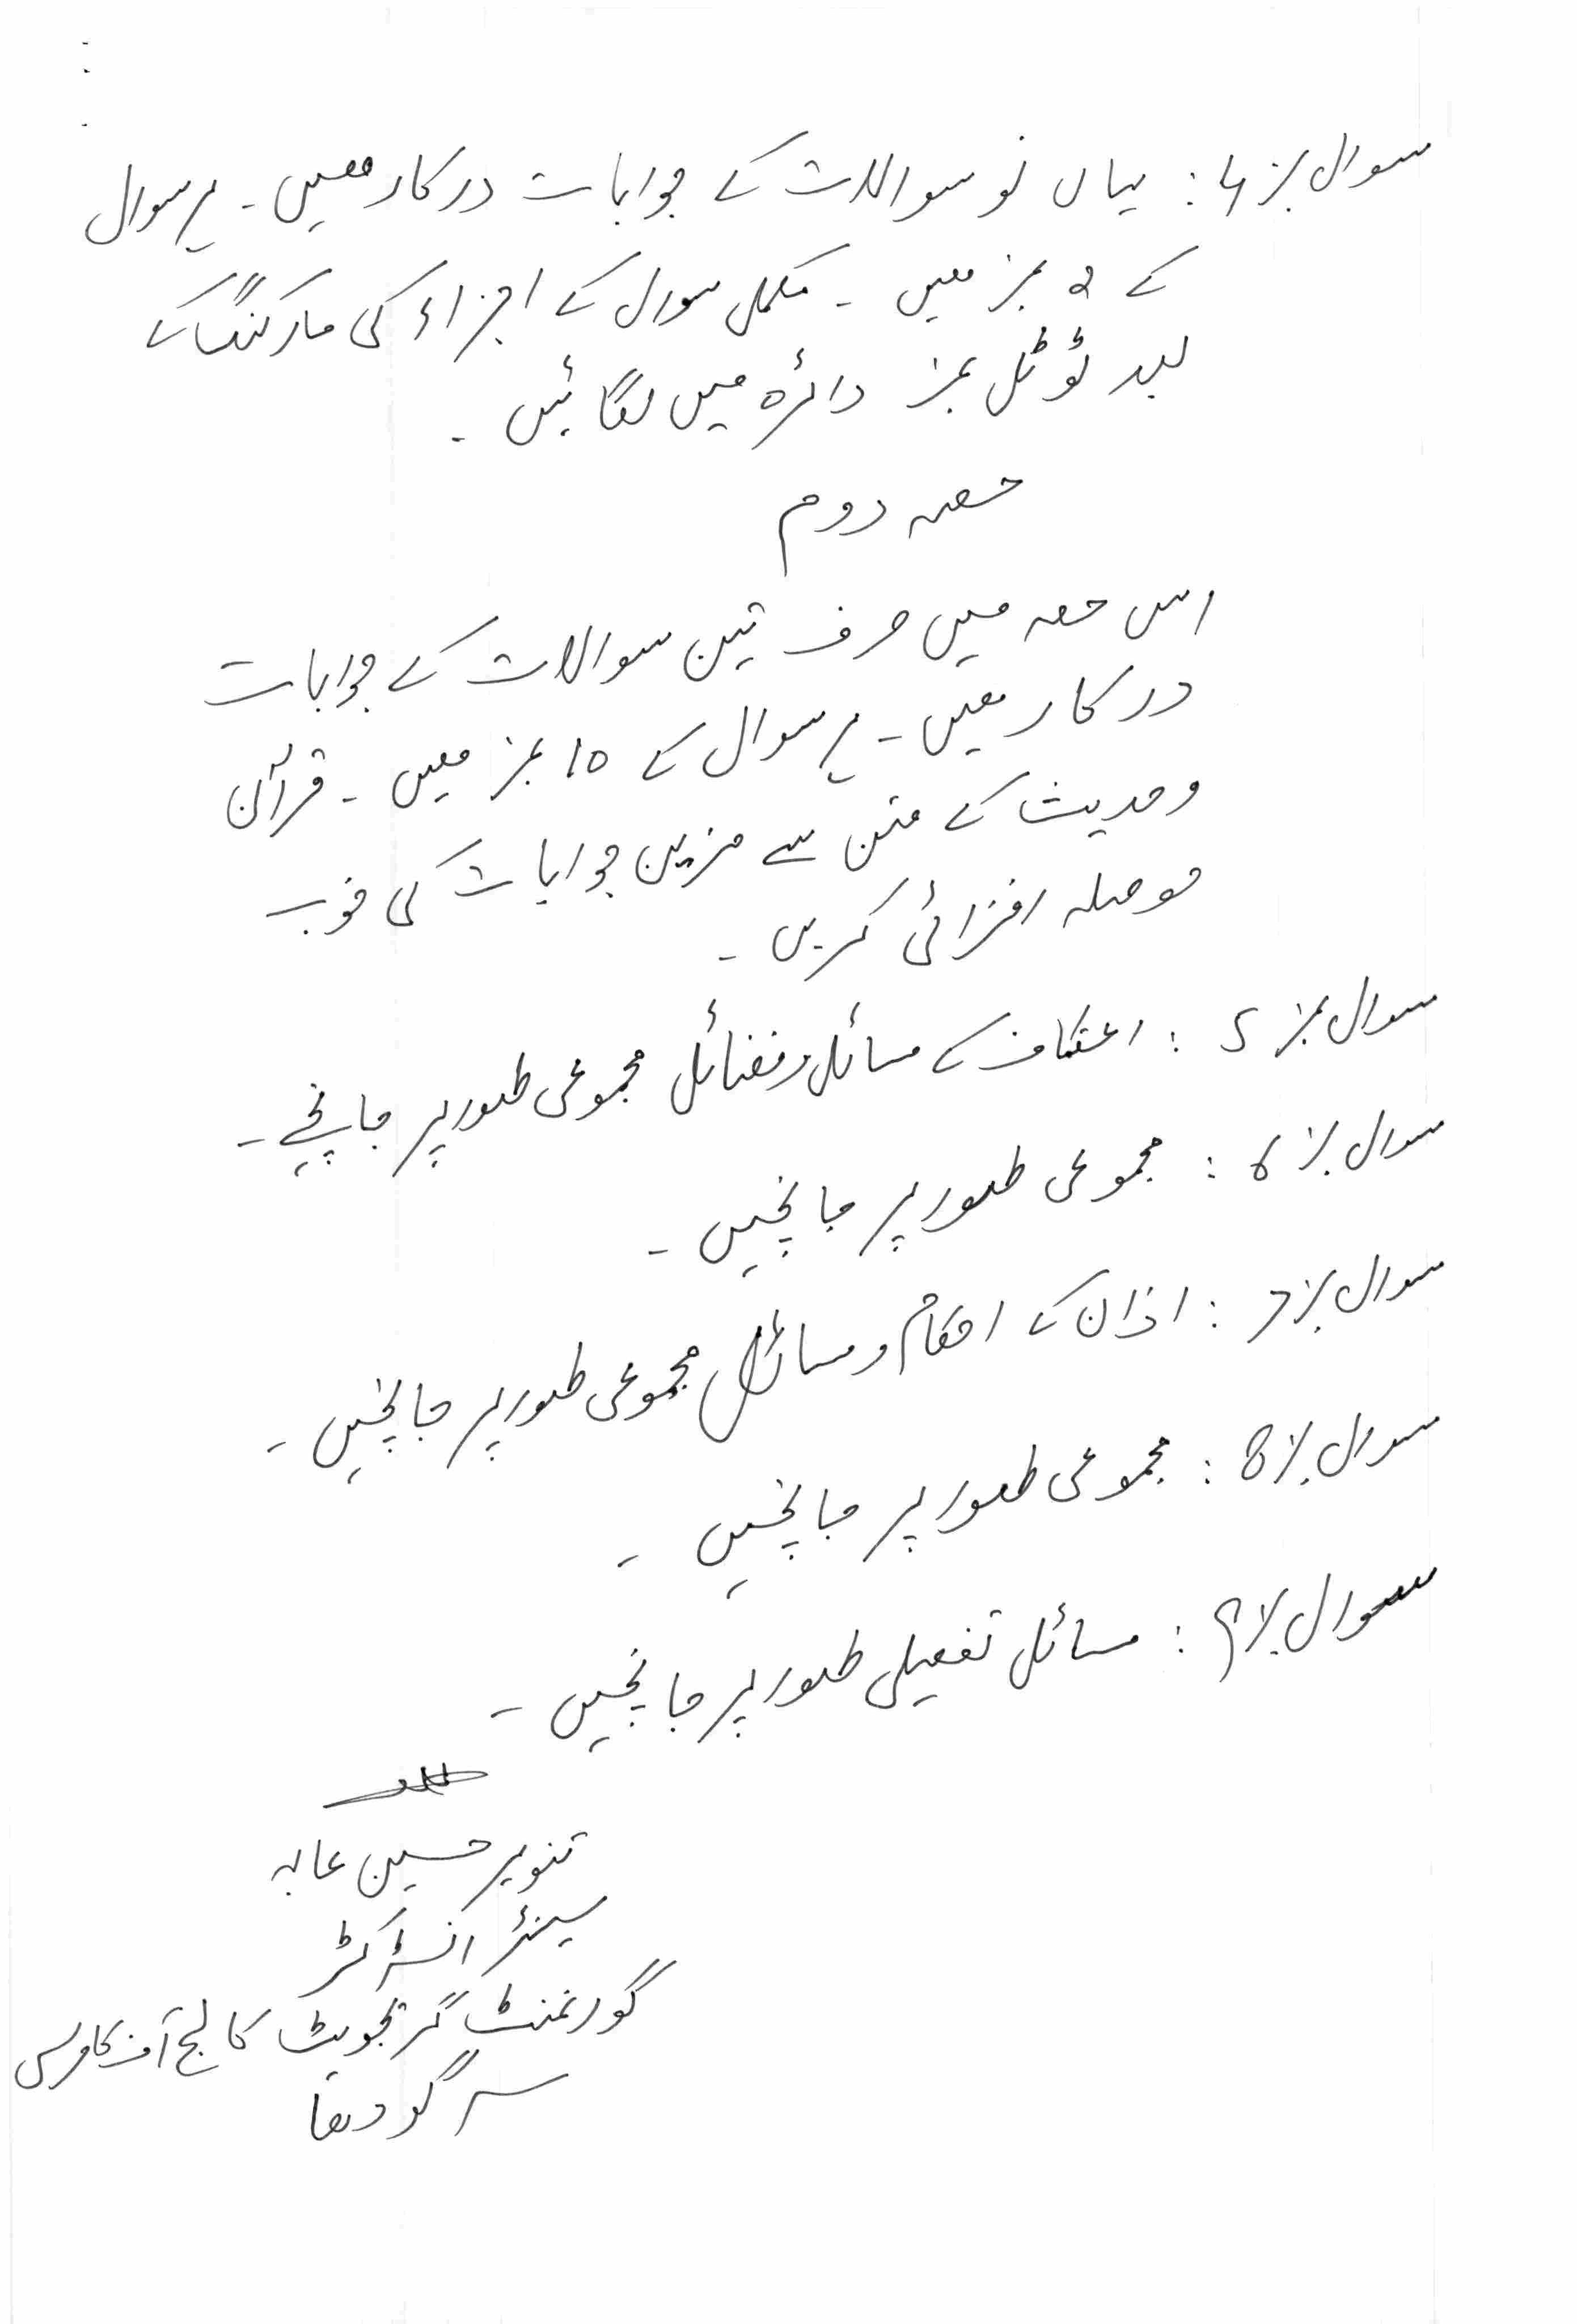 سوال نمبر 4: یہاں نو سوالات کے جوابات درکار ہیں۔ ہر سوال
کے 2 نمبر ہیں۔ مکمل سوال کے اجزاء کی مارکنگ کے
بعد ٹوٹل نمبر دائرہ میں لگائیں۔
حصہ دوم
اس حصہ میں صرف تین سوالات کے جوابات
درکار ہیں۔ ہر سوال کے 10 نمبر ہیں۔ قرآن
و حدیث کے متن سے مزین جوابات کی خوب
حوصلہ افزائی کریں۔
سوال نمبر 5: اعتکاف کے مسائل و فضائل مجموعی طور پر جانچیے۔
سوال نمبر 6: مجموعی طور پر جانچیں۔
سوال نمبر 7: اذان کے احکام و مسائل مجموعی طور پر جانچیں۔
سوال نمبر 8: مجموعی طور پر جانچیں۔
سوال نمبر 9: مسائل تفصیلی طور پر جانچیں۔
تنویر حسین عابد
سینئر انسٹرکٹر
گورنمنٹ گریجویٹ کالج آف کامرس
سرگودھا